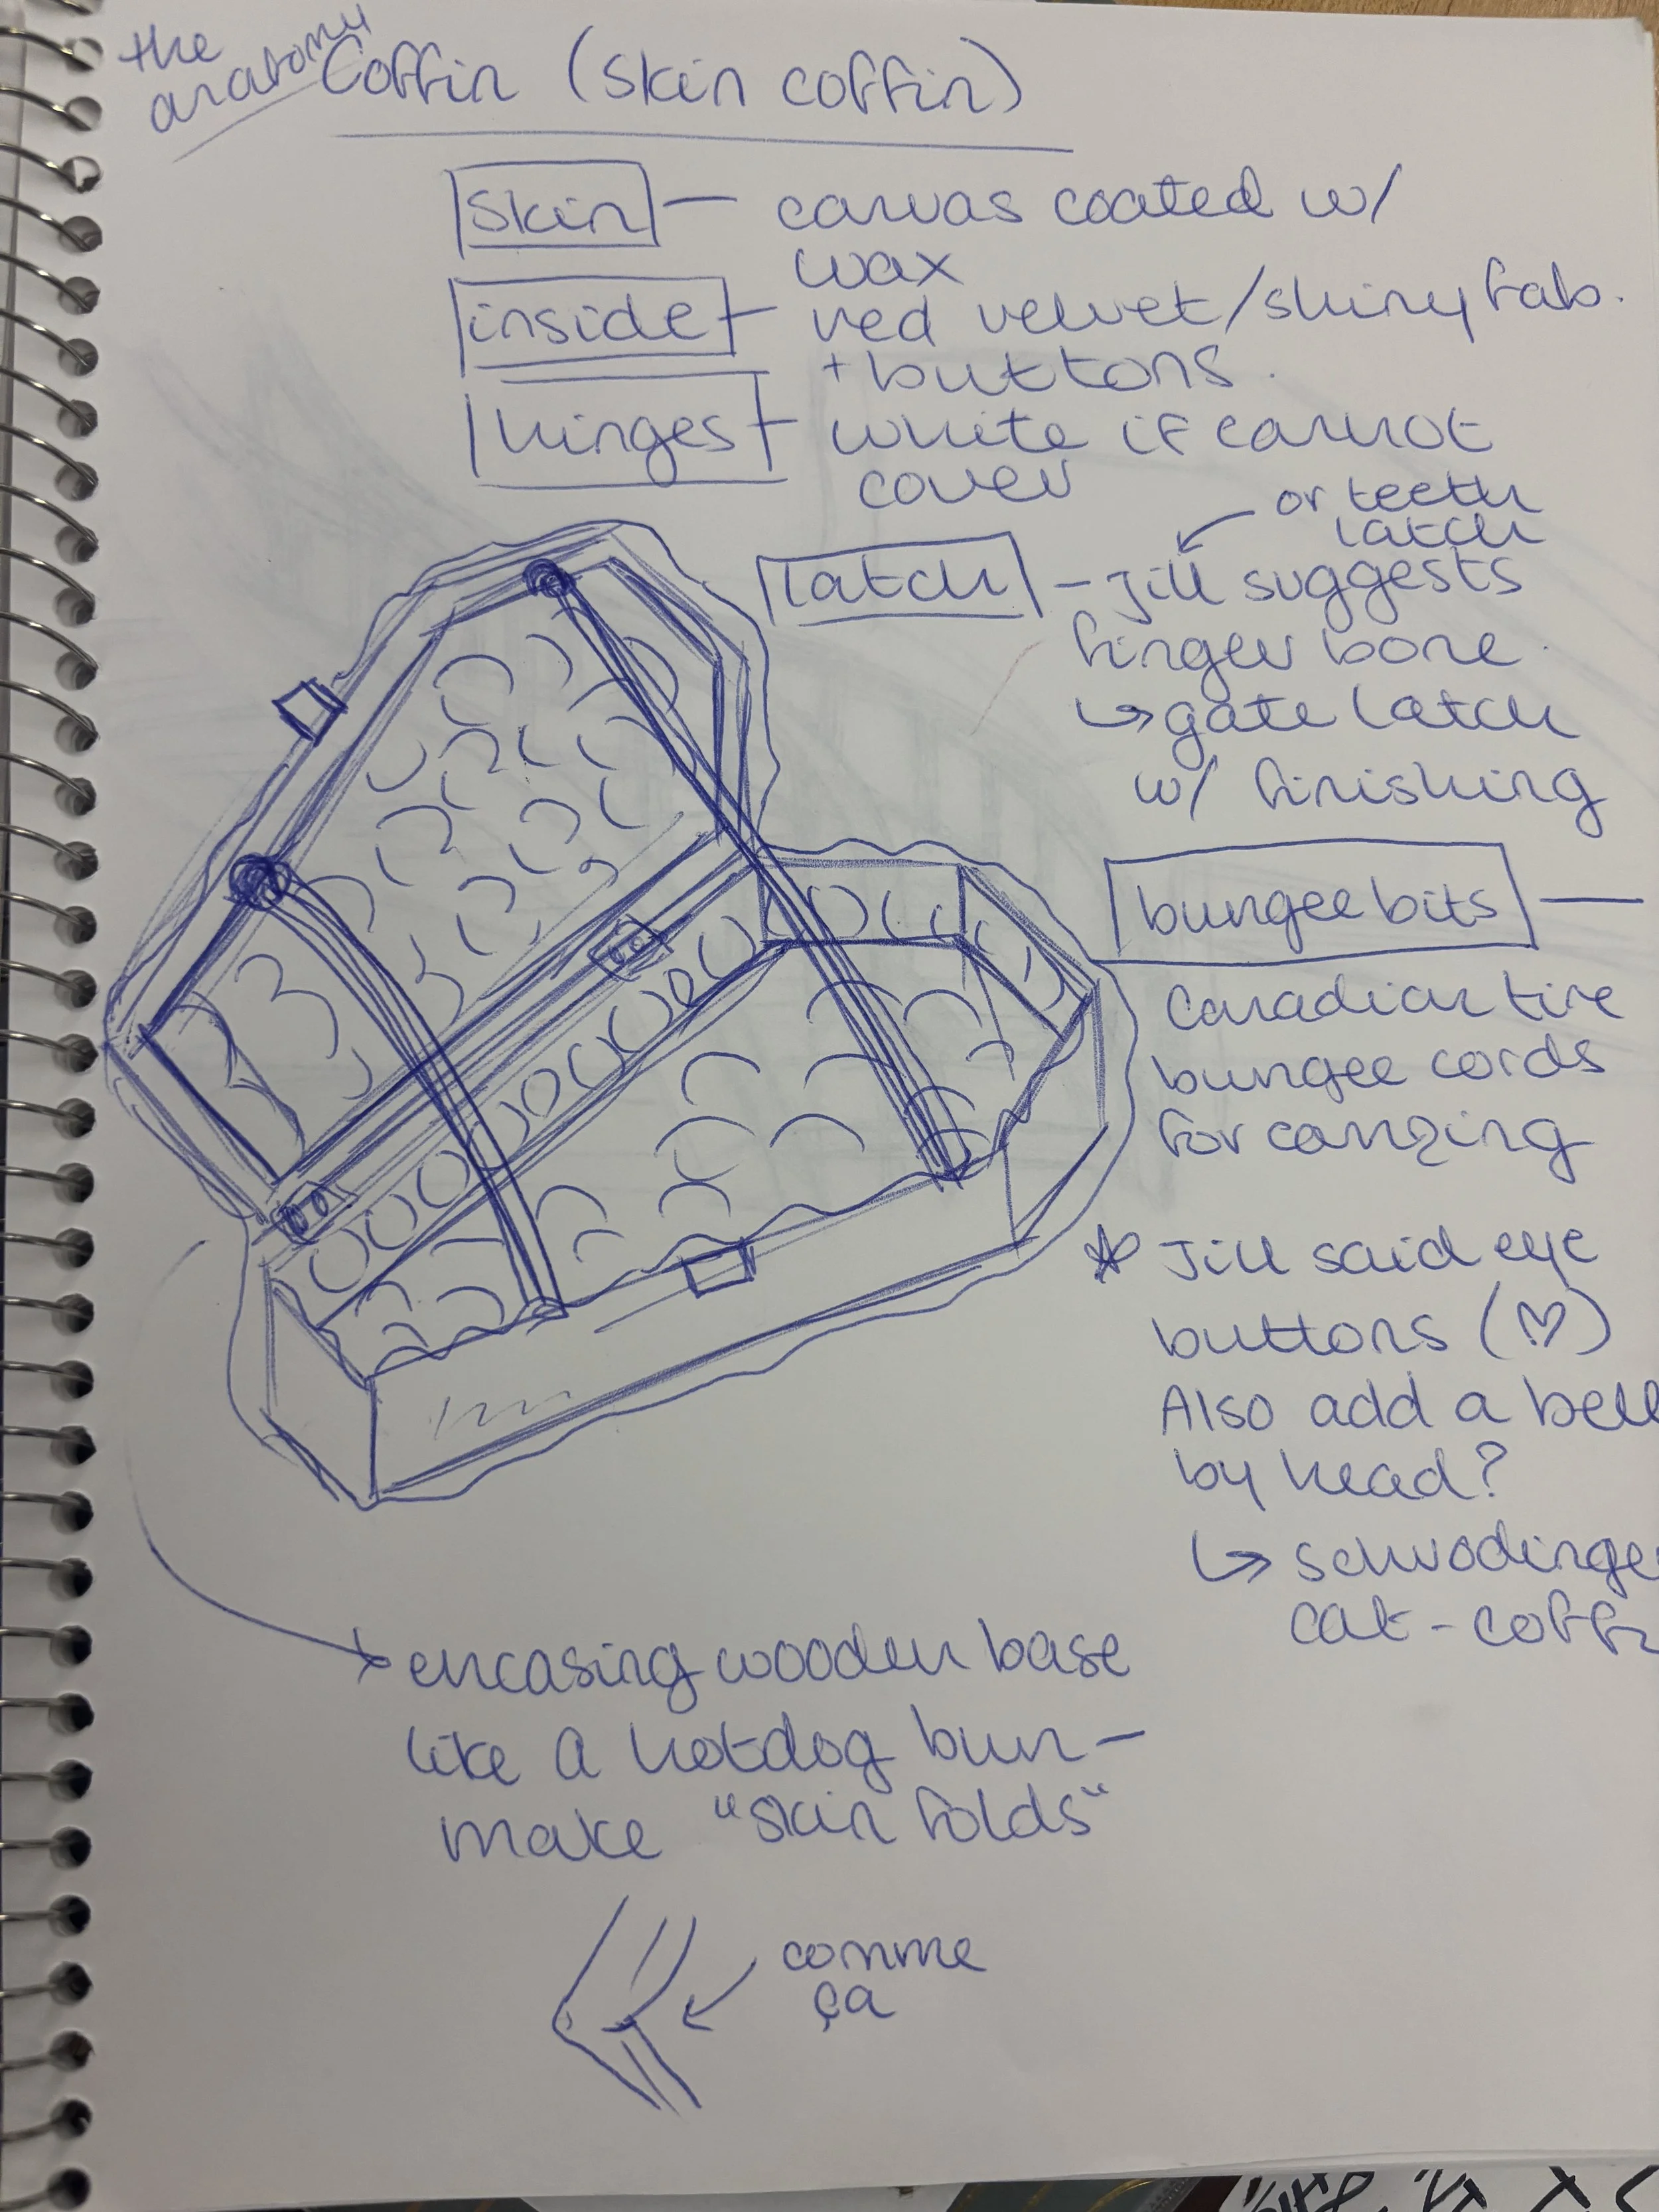 the
anatomy
Coffin (skin coffin)
skin — canvas coated w/
wax
inside — red velvet/shiny fab.
+ buttons.
hinges — white if cannot
cover
or teeth
latch
latch — Jill suggests
finger bone
↳ gate latch
w/ finishing
bungee bits —
Canadian tire
bungee cords
for carrying
☆ Jill said eye
buttons (♡)
Also add a bell
by head?
↳ schrodinge
cat-coff
encasing wooden base
like a hotdog bun —
make "skin folds"
comme
ça